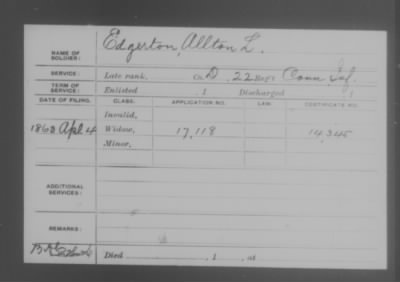 Edgerton, Allton L.
NAME OF SOLDIER:
SERVICE: Late rank, Co. D, 22 Reg't Conn. Inf.
TERM OF SERVICE: Enlisted , 1 Discharged , 1
DATE OF FILING. CLASS. APPLICATION NO. LAW. CERTIFICATE NO.
Invalid,
1863 Apl 4 Widow, 17,118 14,345
Minor,
ADDITIONAL SERVICES:
REMARKS:
Died , 1 , at